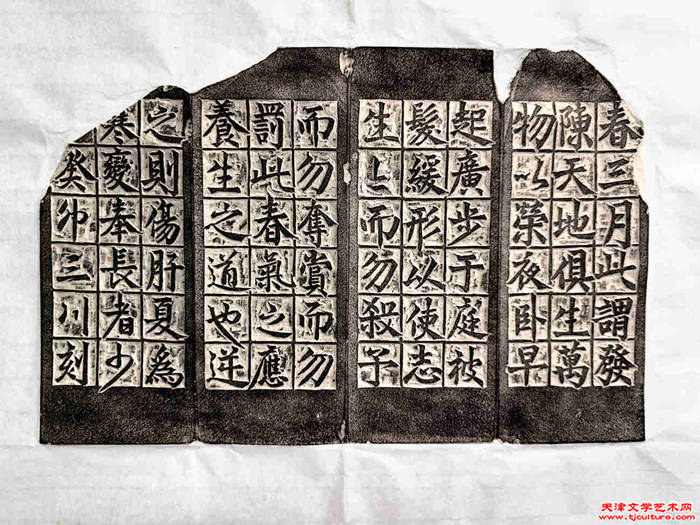 春三月此謂發
陳天地俱生萬
物以榮夜卧早
起廣步于庭被
髮緩形以使志
生〻而勿殺予
而勿奪賞而勿
罰此春氣之應
養生之道也逆
之則傷肝夏爲
寒變奉長者少
癸卯三川刻
天津文学艺术网
www.tjculture.com